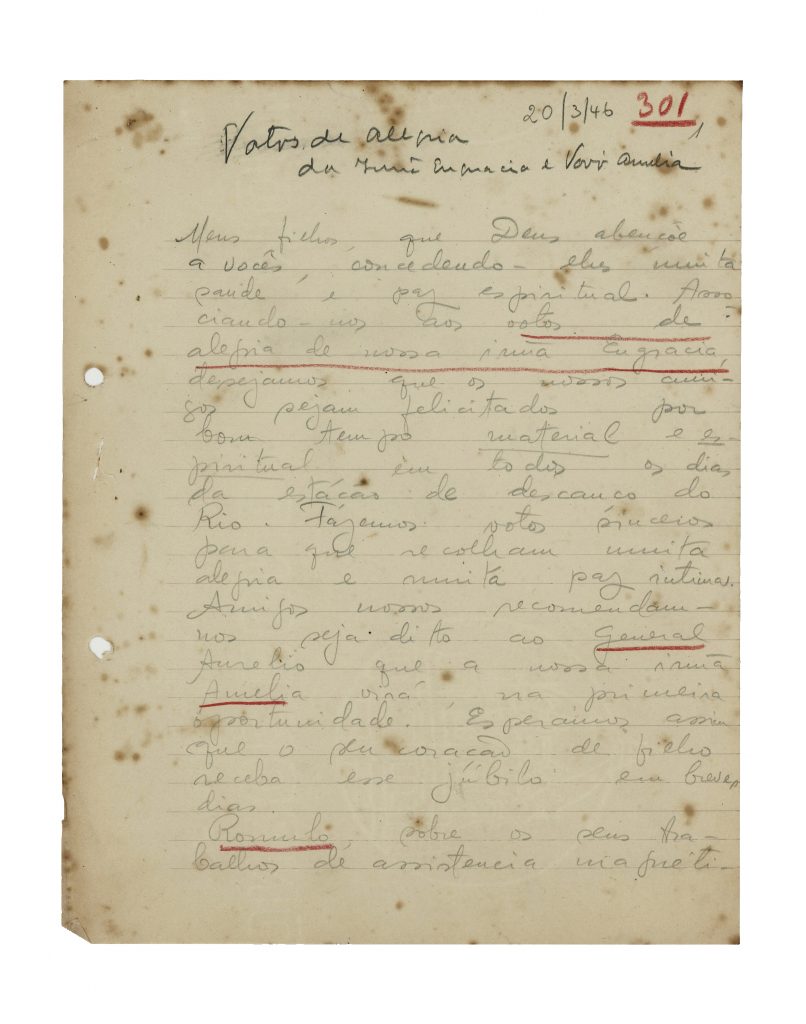 20/3/46 301
1
Votos de alegria
da Irmã Engracia e Vovó Amelia
Meus filhos, que Deus abençõe
a vocês, concedendo-lhes muita
saude e paz espiritual. Asso
ciando-nos aos votos de
alegria de nossa irmã Engracia,
desejamos que os nossos ami-
gos sejam felicitados por
bom tempo material e es-
piritual em todos os dias
da estação de descanço do
Rio. Fazemos votos sinceros
para que recolham muita
alegria e muita paz intima.
Amigos nossos recomendam-
nos seja dito ao General
Aurelio que a nossa irmã
Amelia virá na primeira
oportunidade. Esperamos assim
que o seu coração de filho
receba esse júbilo em breves
dias.
Romulo, sobre os seus tra-
balhos de assistencia magneti-